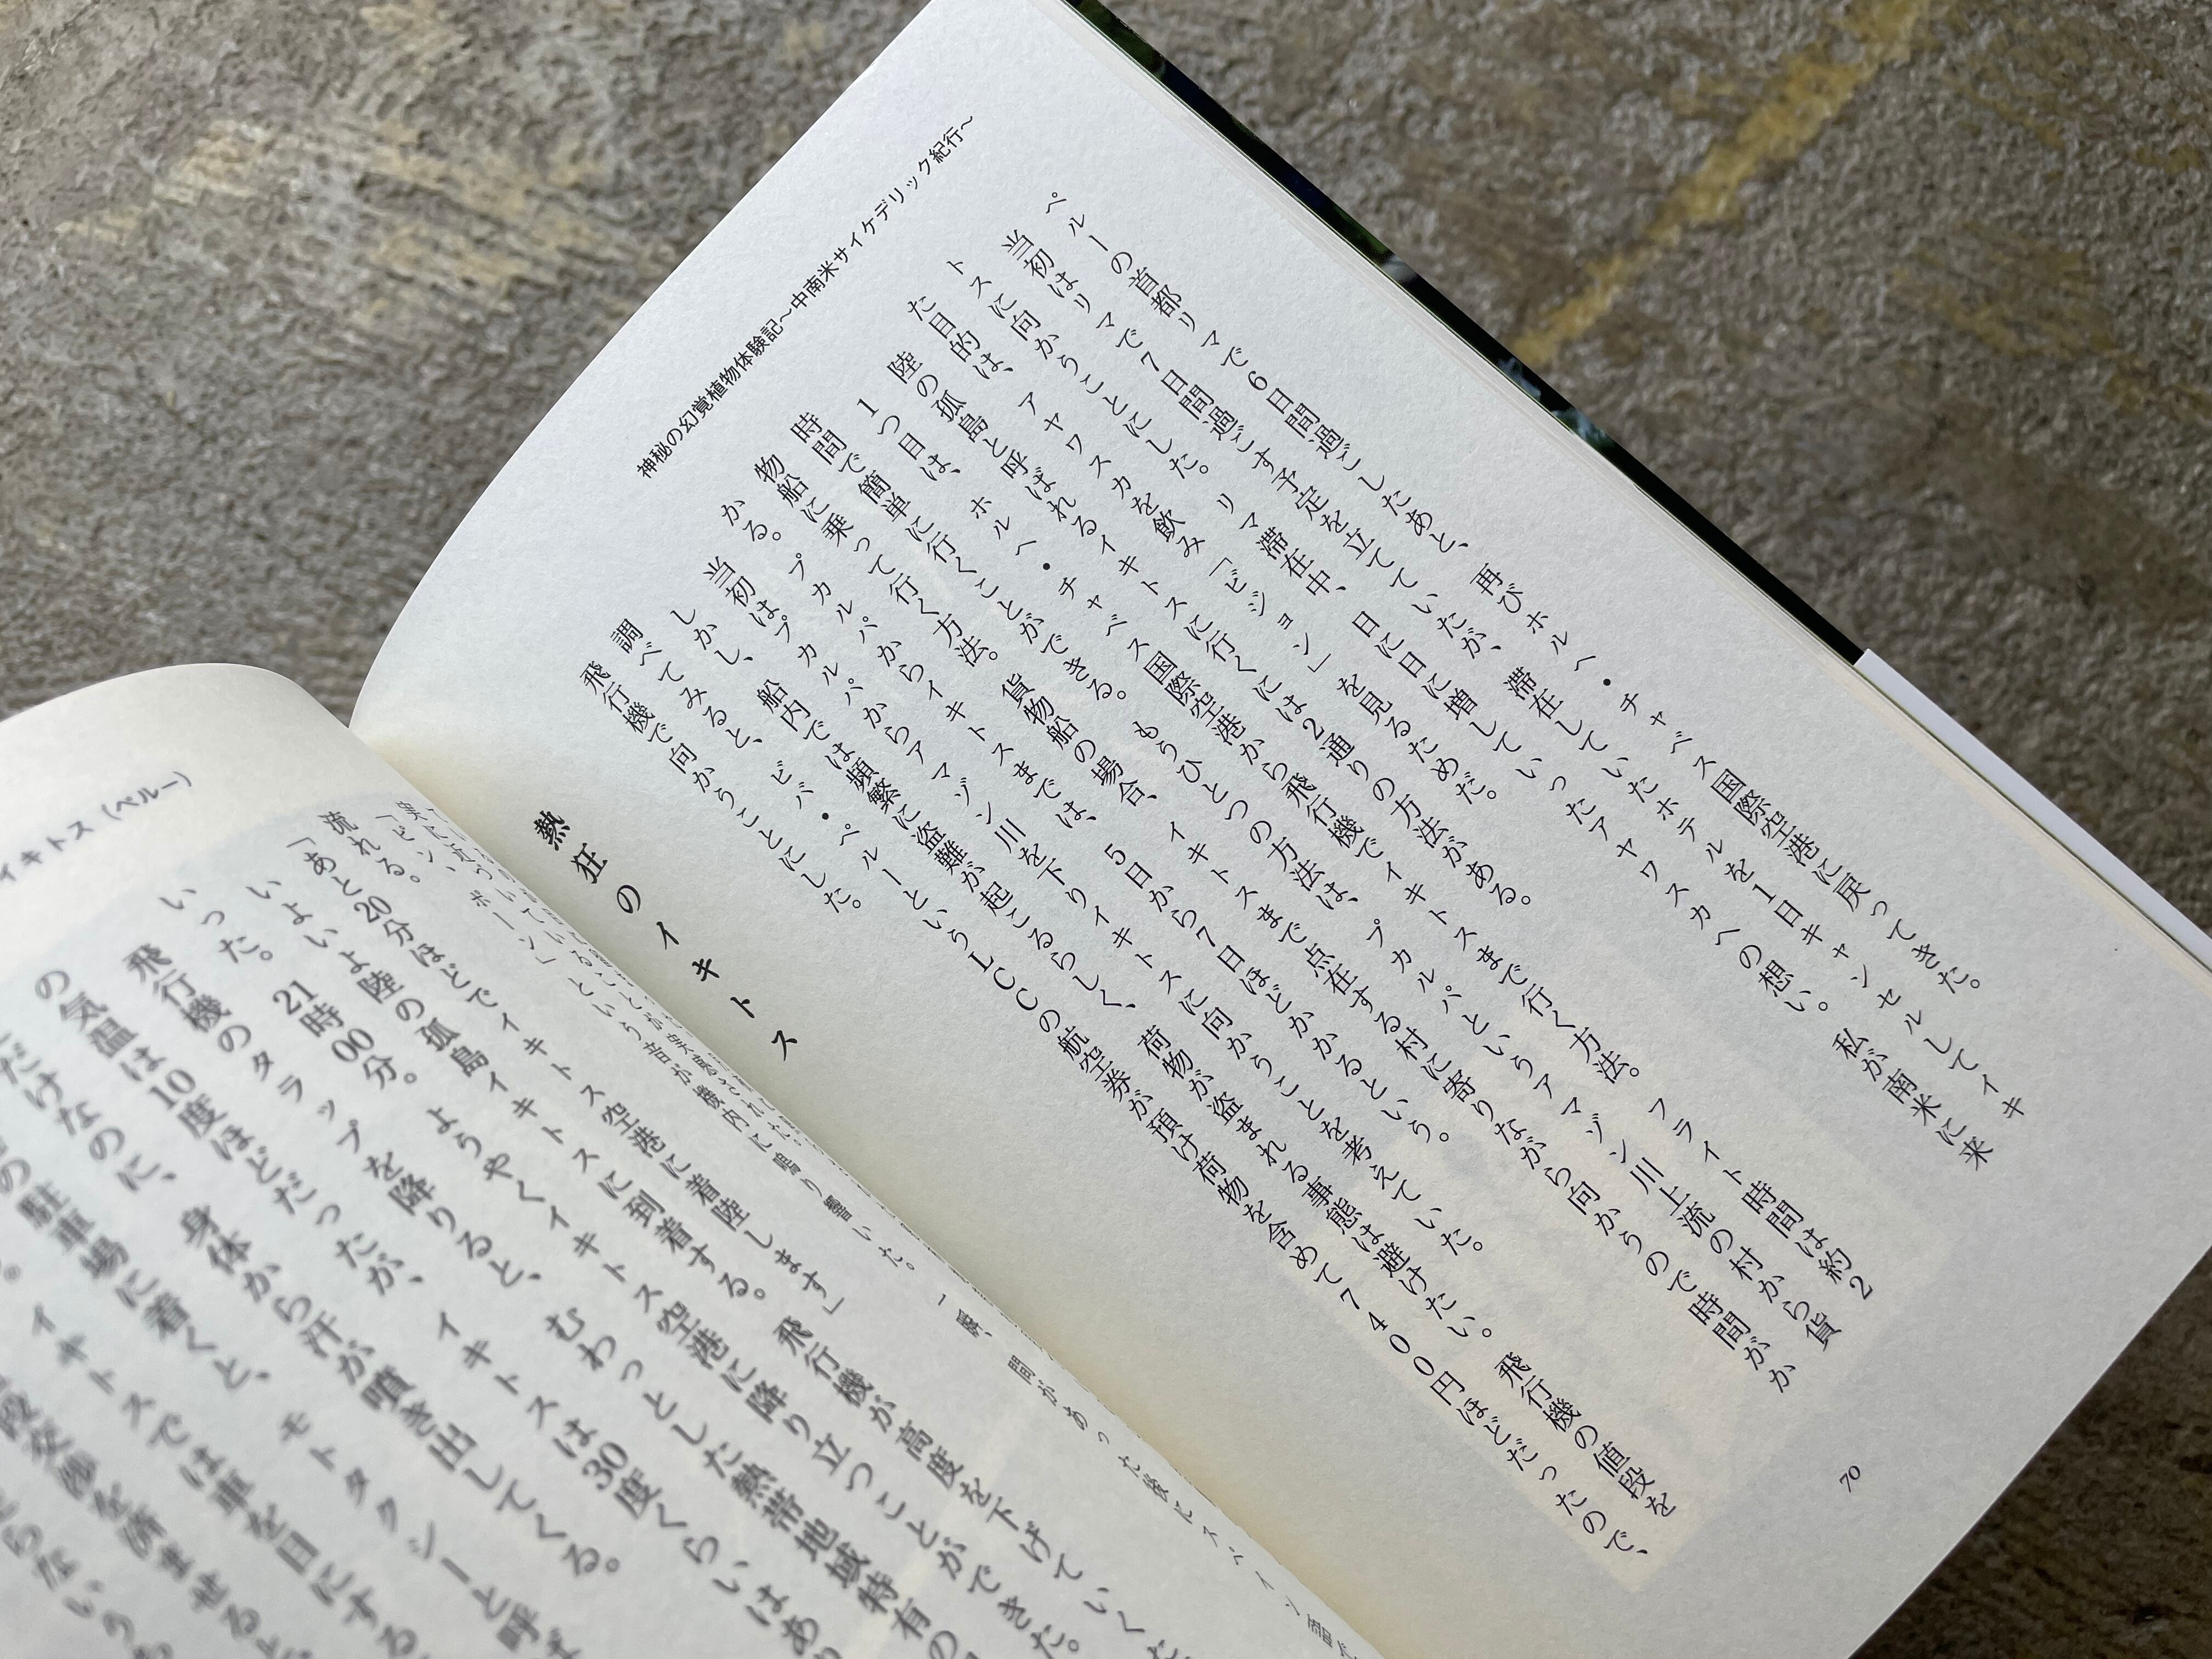 神秘の幻覚植物体験記〜中南米サイケデリック紀行〜
ペルーの首都リマで6日間過ごしたあと、再びホルヘ・チャベス国際空港に戻ってきた。
当初はリマで7日間過ごす予定を立てていたが、滞在していたホテルを1日キャンセルしてイキ
トスに向かうことにした。リマ滞在中、日に日に増していったアヤワスカへの想い。私が南米に来
た目的は、アヤワスカを飲み「ビジョン」を見るためだ。
陸の孤島と呼ばれるイキトスに行くには2通りの方法がある。
1つ目は、ホルヘ・チャベス国際空港から飛行機でイキトスまで行く方法。フライト時間は約2
時間で簡単に行くことができる。もうひとつの方法は、プカルパというアマゾン川上流の村から貨
物船に乗って行く方法。貨物船の場合、イキトスまで点在する村に寄りながら向かうので時間がか
かる。プカルパからイキトスまでは、5日から7日ほどかかるという。
当初はプカルパからアマゾン川を下りイキトスに向かうことを考えていた。
しかし、船内では頻繁に盗難が起こるらしく、荷物が盗まれる事態は避けたい。飛行機の値段を
調べてみると、ビバ・ペルーというLCCの航空券が預け荷物を含めて7400円ほどだったので、
飛行機で向かうことにした。
熱狂のイキトス
70
イキトス（ペルー）
「ピン、ポーン」という音が機内に鳴り響いた。一瞬、間があった後にスペイン語で
流れる。
「あと20分ほどでイキトス空港に着陸します」
いよいよ陸の孤島イキトスに到着する。飛行機が高度を下げていく
いった。
21時00分。ようやくイキトス空港に降り立つことができた。
飛行機のタラップを降りると、むわっとした熱帯地域特有の
の気温は10度ほどだったが、イキトスは30度くらいはあ
だけなのに、身体から汗が噴き出してくる。
の駐車場に着くと、モトタクシーと呼ば
イキトスでは車を目にする
段交渉を済ませると
らないうち